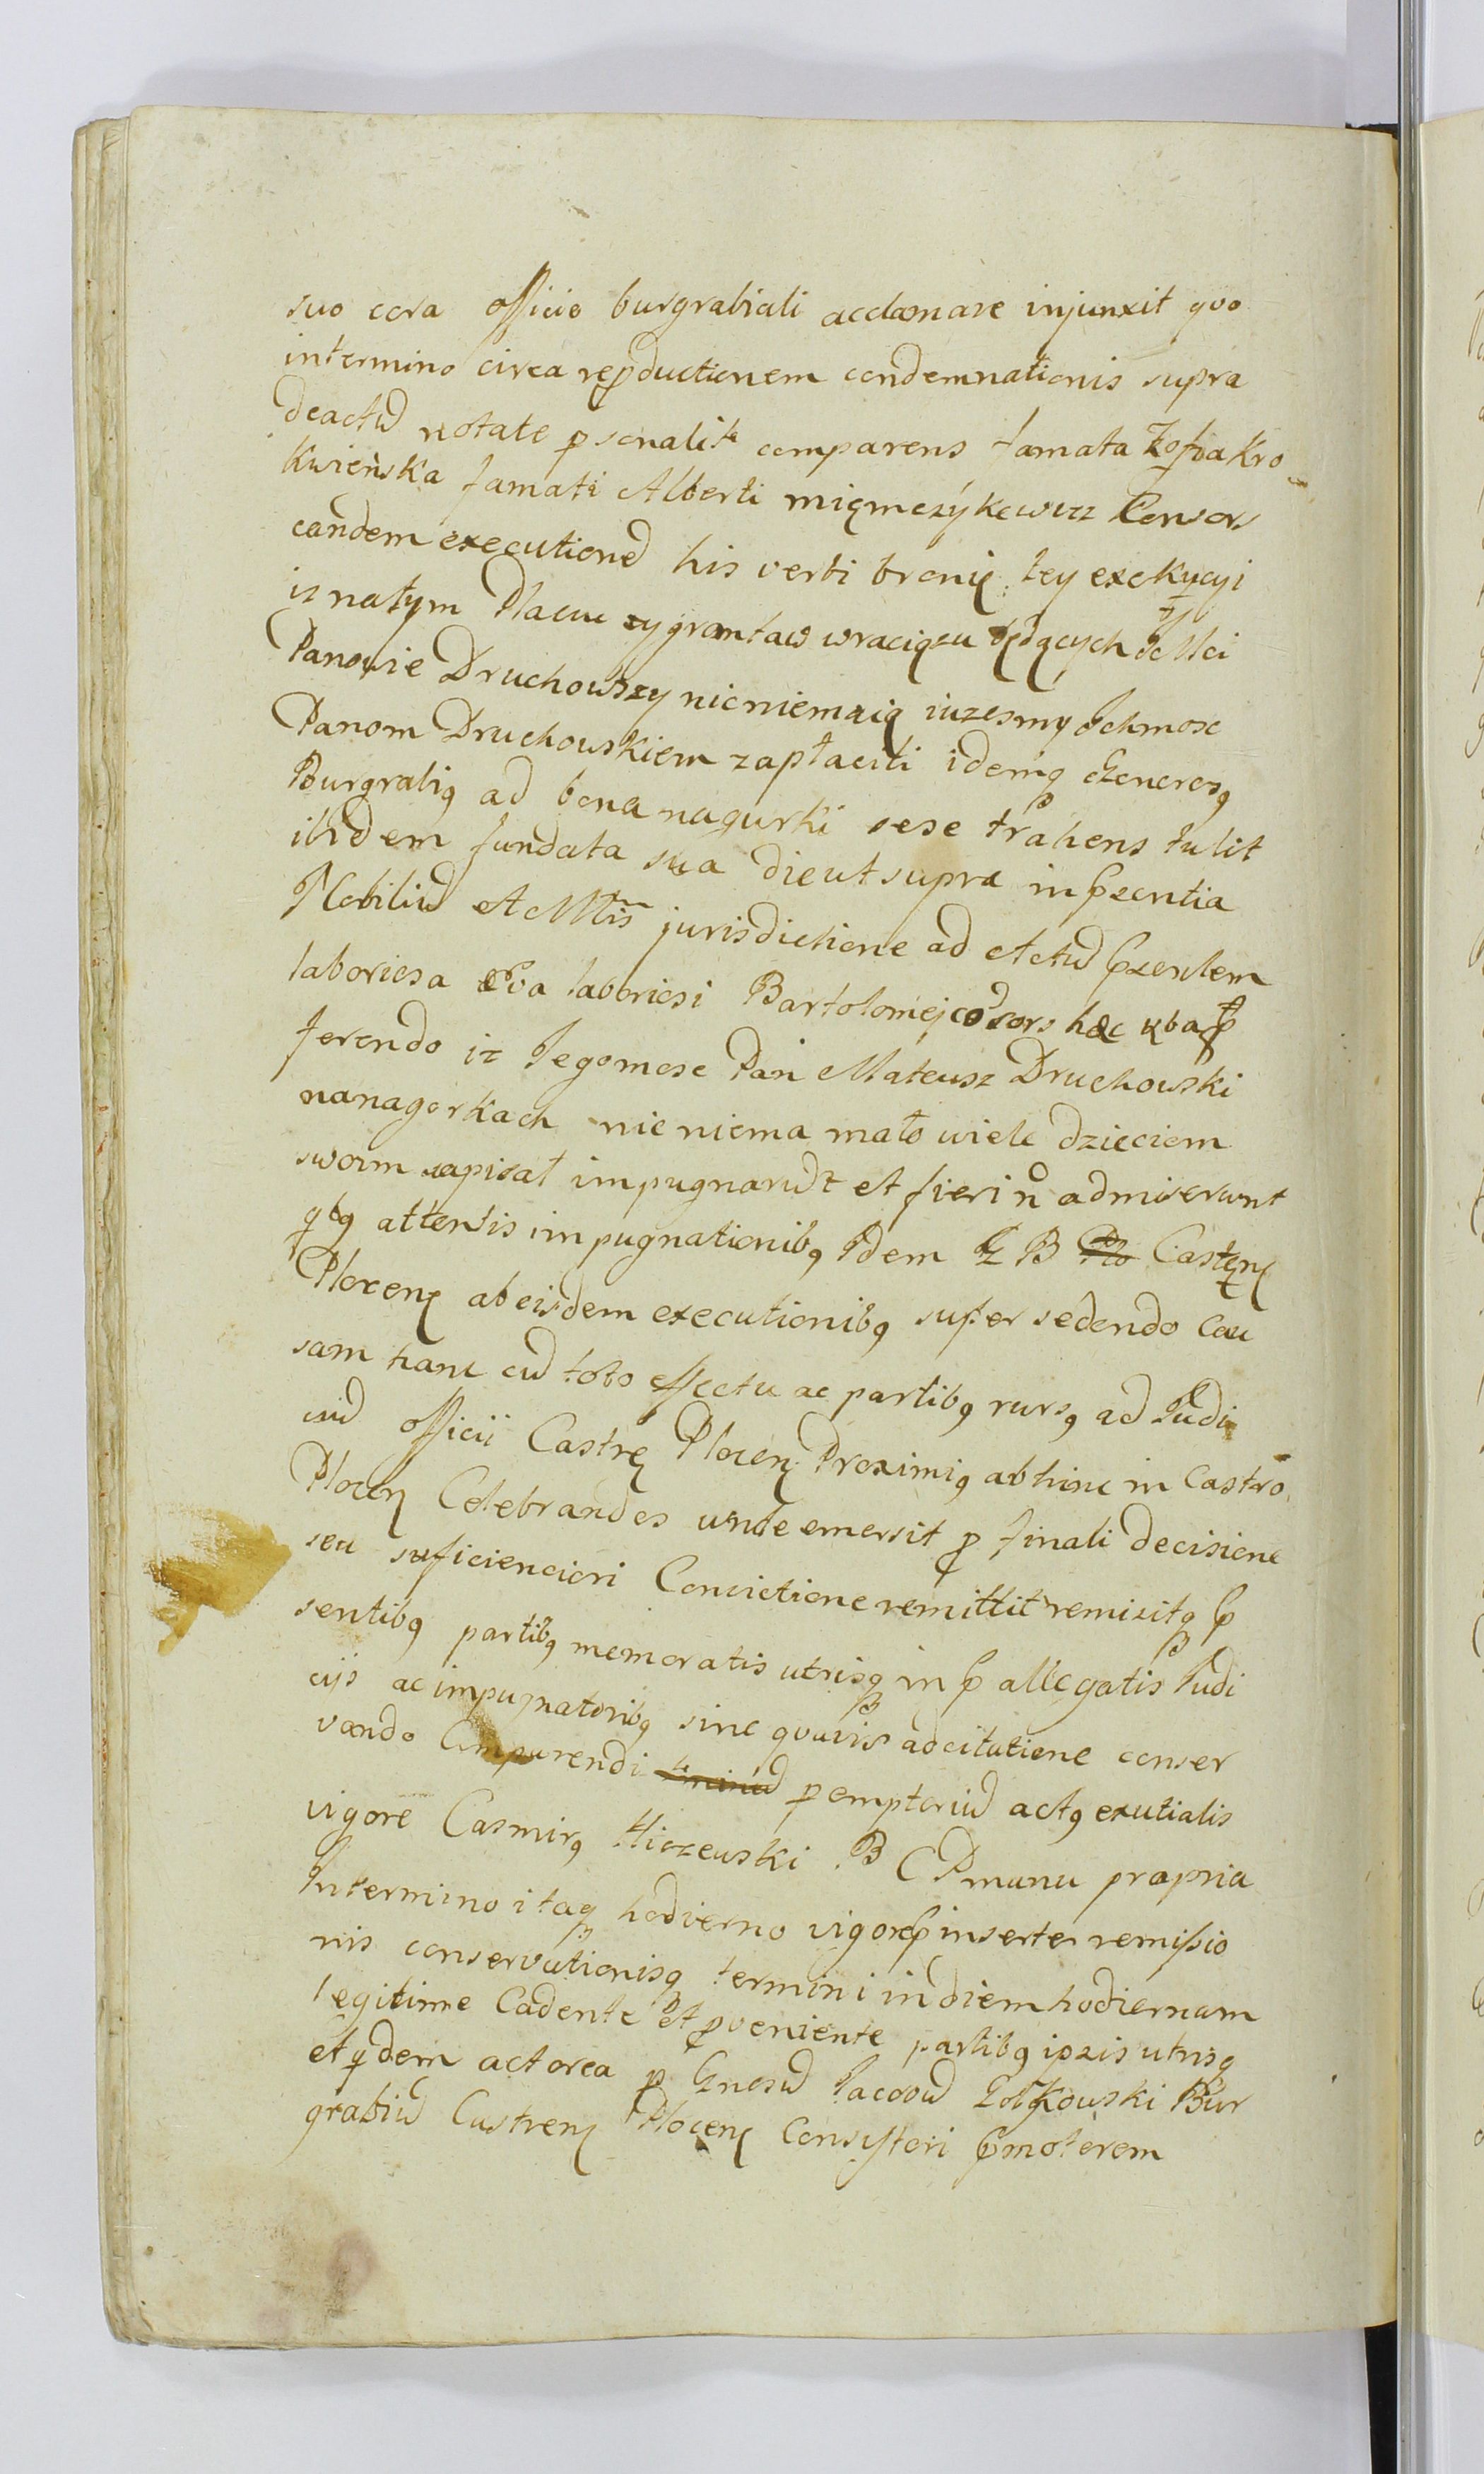 suo cora officio burgrabiali acclamare injunxit quo
intermino circa reproductionem condemnationis supra
deactu notate psonalit comparens famata Zofia Kro
Kwieńska famati Alberti mięmczykewicz Consors
eandem executione his verbi bronię tey exekucyi
iz natym Placu zy grontaw wraciązu będących Ic Mci
Panowie Druchowszy nic niemaią iuzesmy Ichmosc
Panom Druchowskiem zapłacili idemq Generosq
Burgrabiq ad bona nagurki sese trahens tulit
ibidem fundata sua die ut supra in pzentia
Nobiliu et Mtis jurisdictione ad Actu pzentem
laboriosa Eva laboriosi Bartolomej cosors hec vba p
ferendo iz Jegomosc Pan Mateusz Druchowski
nanagorkach nic niema mało wiele dzieciem
swoim zapisał impugnarut et fieri no admiserunt
qbq attentis impugnationibq Idem G B Castren
Plocen ab eisdem executionibq super sedendo Cau
sam hanc cu toto effectu ac partibq rursq ad Iudi
ciu officii Castren Plocen Proximiq abhinc in Castro
Plocen Celebrandes unde emersit p finali decisione
seu suficienciori Convictione remittit remisitq p
sentibq partibq memoratis utrisq in p allegatis Iudi
cijs ac impugnatoribq sine quavis adcitatione conser
vando Comparendi tminu pemptoriu actq exutialis
vigore Casmirq Hiczewski B C P manu propria
In termino itaq hodierno vigore pinserte remissio
nis conservationisq termini in diem hodiernam
legitime Cadente et pveniente partibq ipzis utrisq
et qdem actorea p Gnosu Jacobu Gołkowski Bur
grabiu Castren Plocen Consistori pmotorem